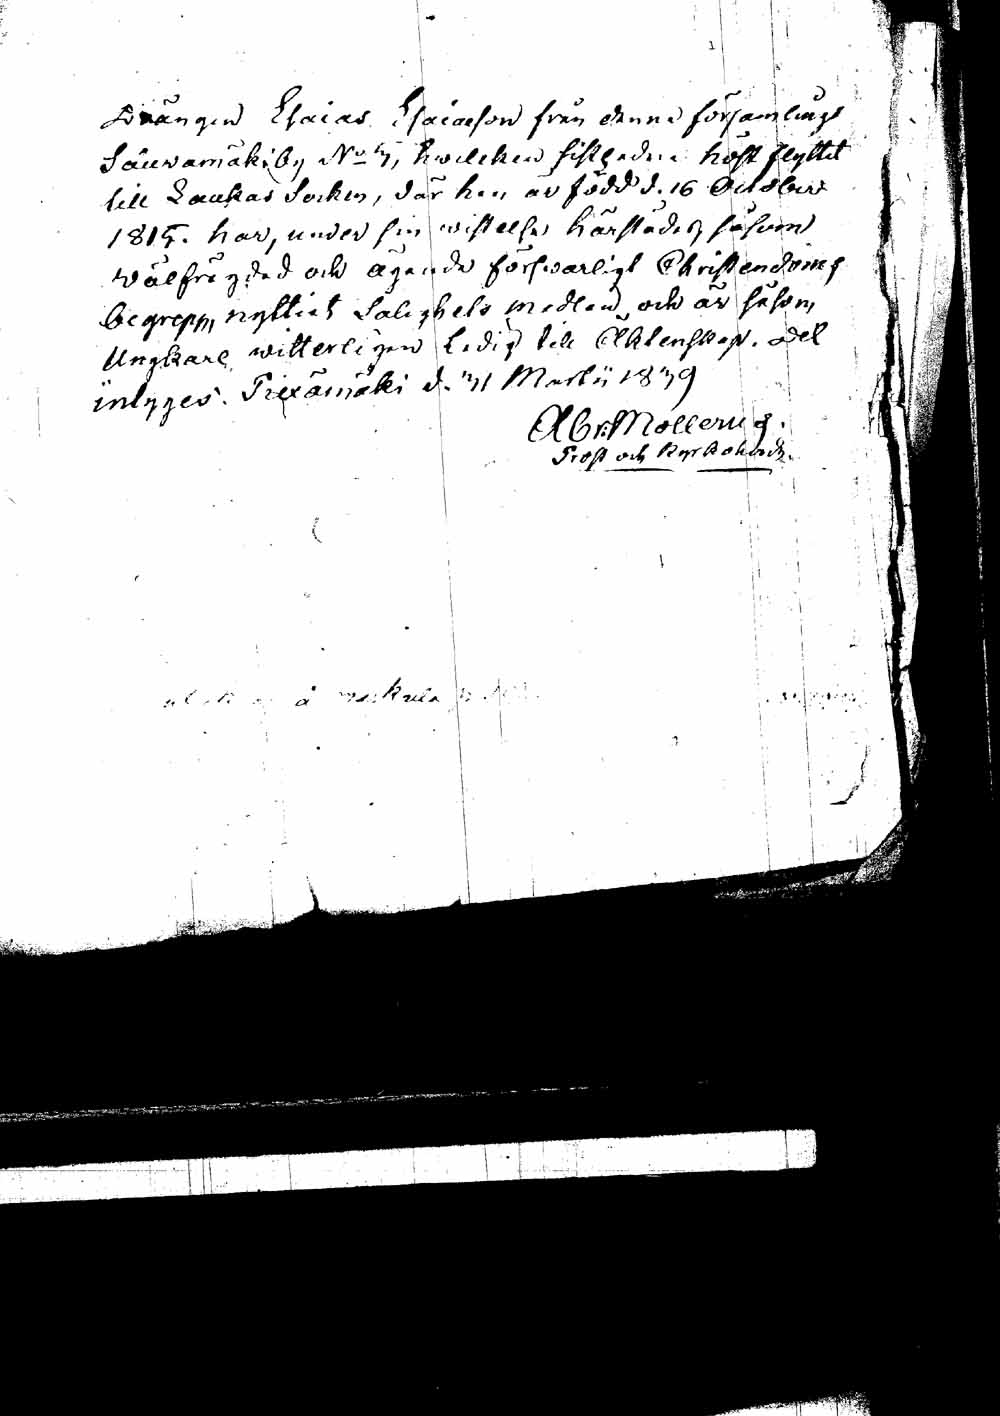 Drängen Esaias Esaiasson från denne församlings
Säuvamäki by No 5, hwilcken sistledne höst flyttet
till Laukas Socken, där han är född d. 16 October
1815. har, under sin wistelse härstädes, såsom
wälfrägdad och ägande förswarligt Christendoms
begrepp, nyttiat Salighets medlen, och är såsom
Ungkarl, witterligen Ledig till Äktenskap. Det
intyges. Piexämäki d. 31 Martii 1839
Abr: Mollerus.
Prost och Kyrkoherde.